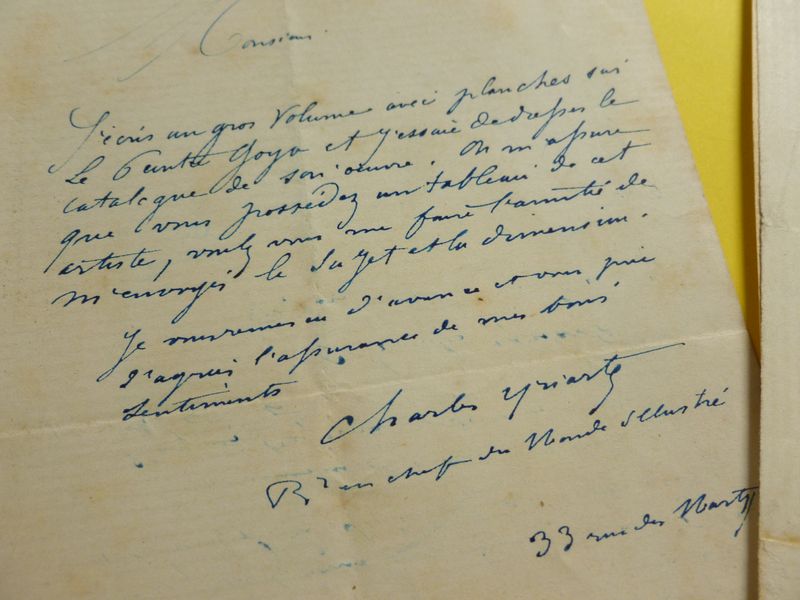 Monsieur.
J'écris un gros volume avec planches sur
le peintre Goya et j'essaie de dresser le
catalogue de son œuvre. On m'assure
que vous possédez un tableau de cet
artiste, voulez vous me faire l'amitié de
m'envoyer le sujet et la dimension.
Je vous remercie d'avance et vous prie
d'agréer l'assurance de mes bons
sentiments
Charles Yriarte
Rr en chef du Monde Illustré
33 rue des Martyrs